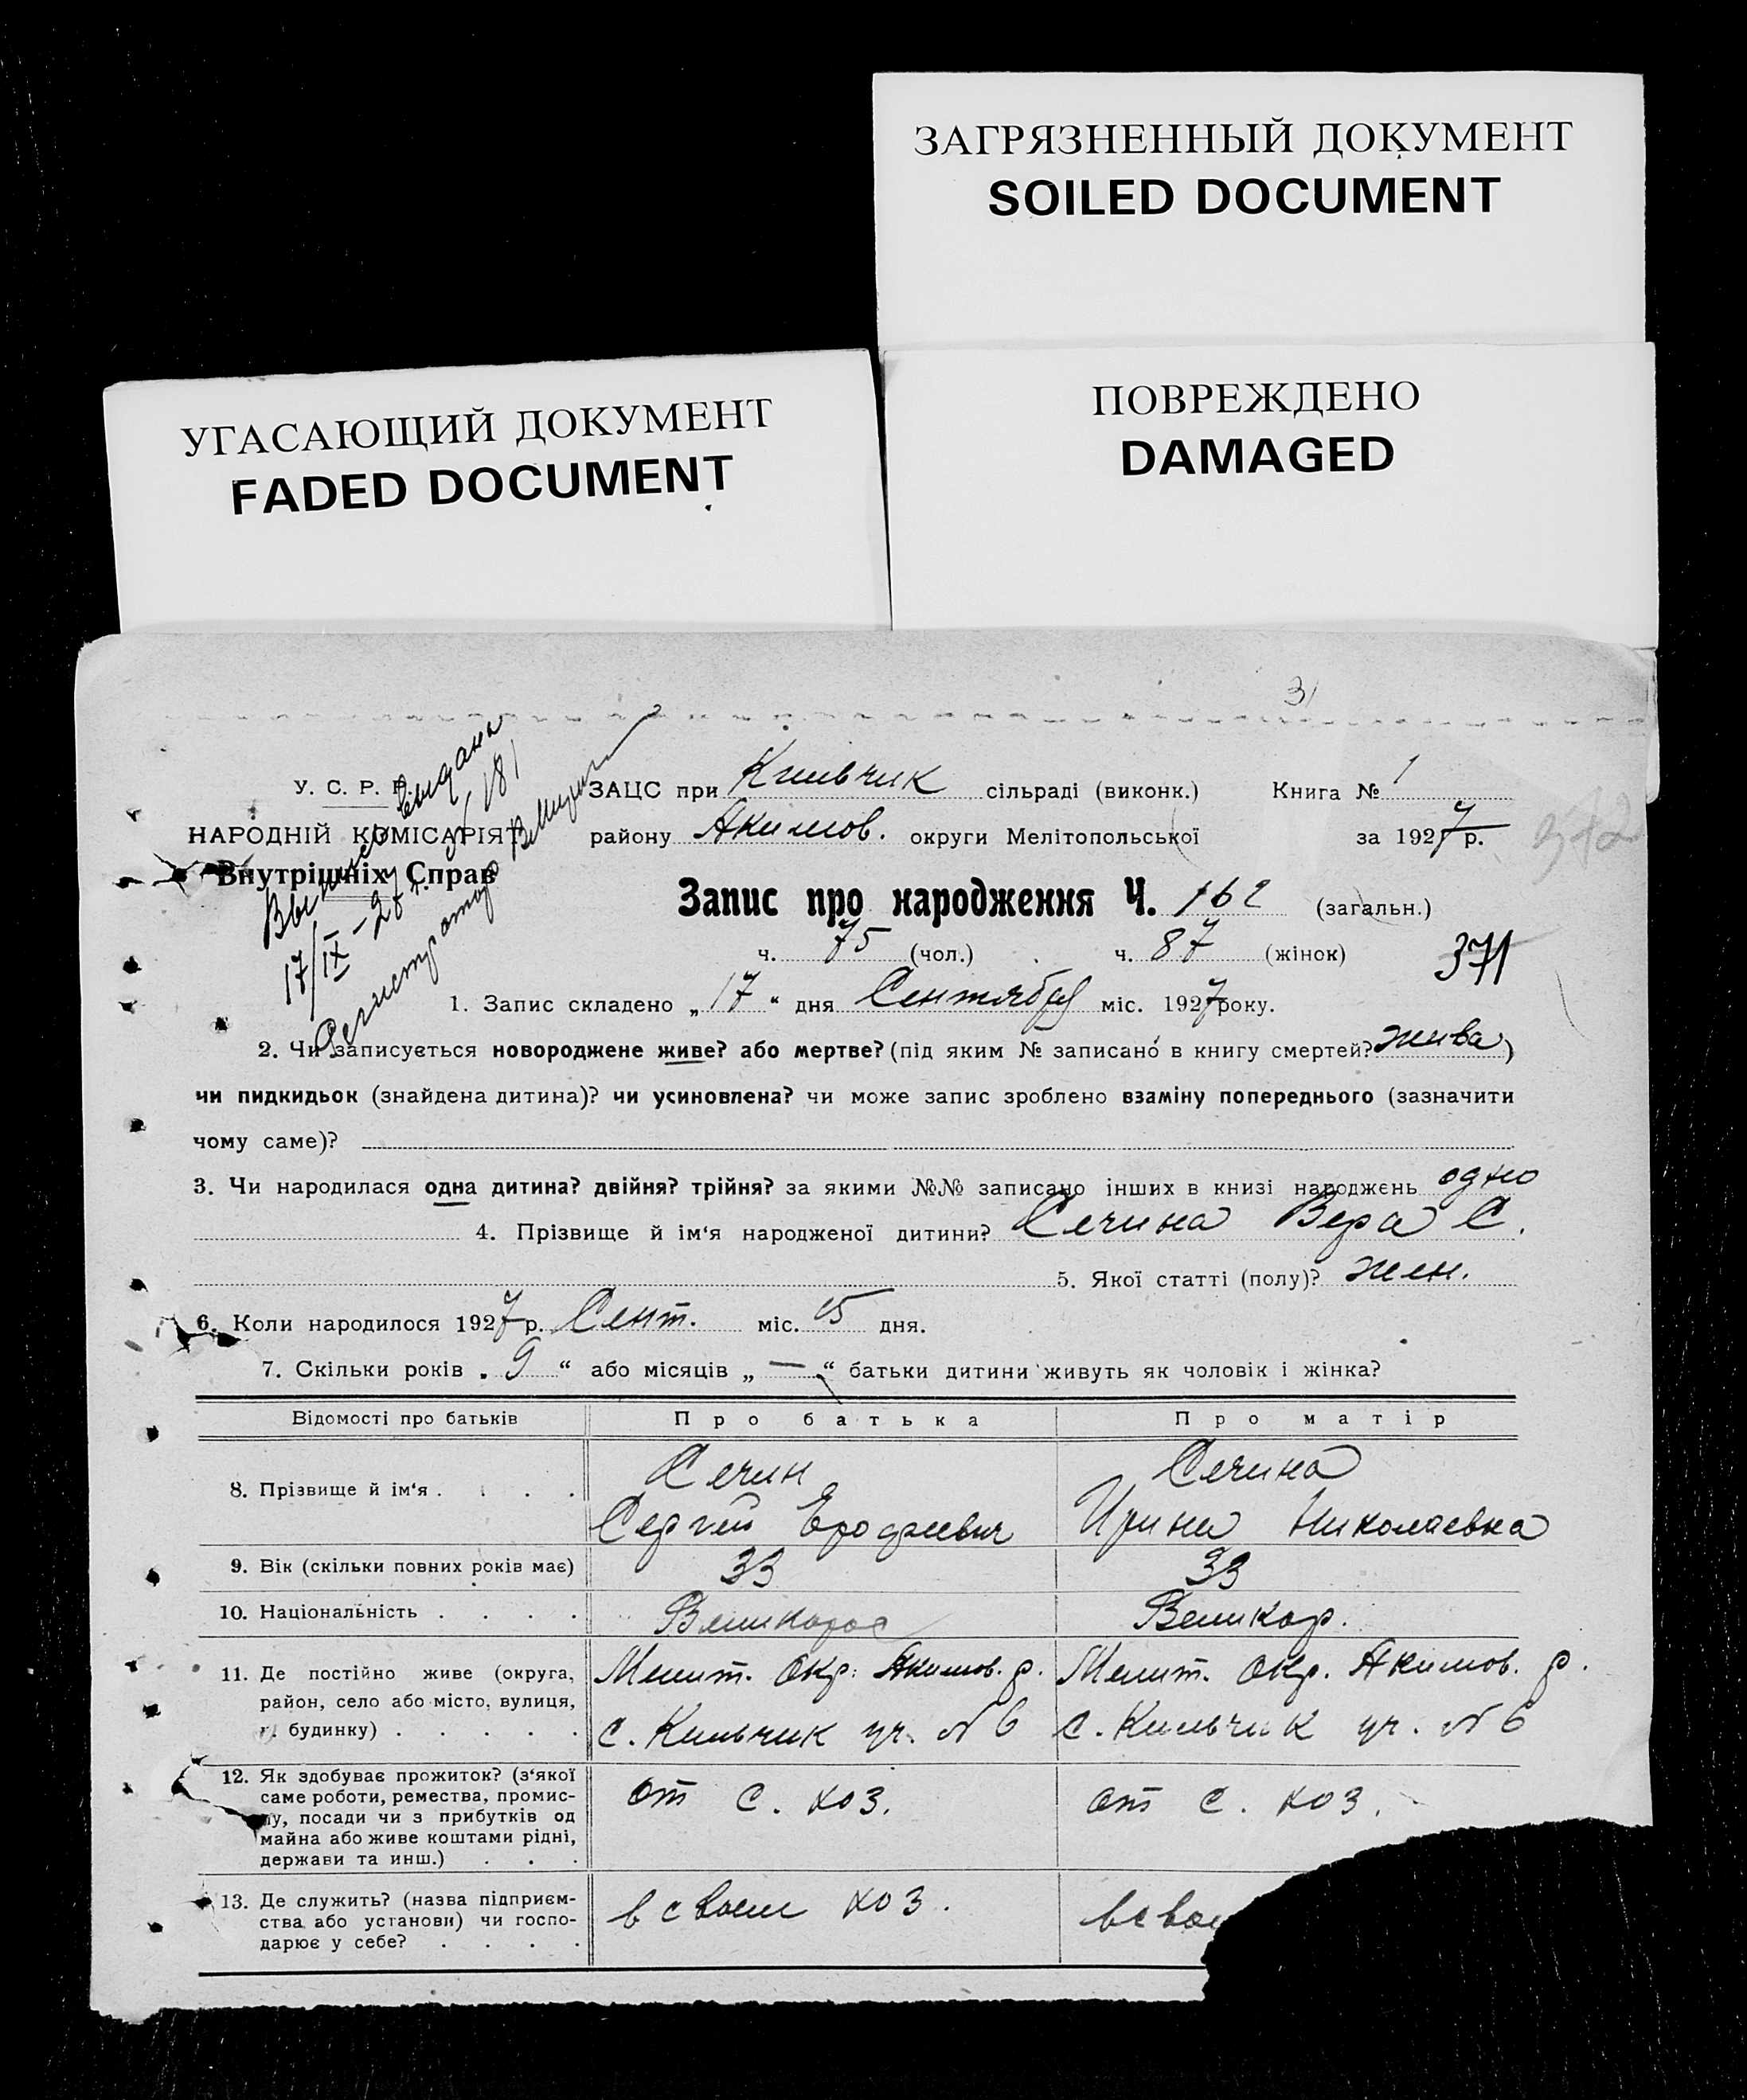 ЗАГРЯЗНЕННЫЙ ДОКУМЕНТ
SOILED DOCUMENT
УГАСАЮЩИЙ ДОКУМЕНТ
FADED DOCUMENT
ПОВРЕЖДЕНО
DAMAGED
31
У. С. Р. Р.
НАРОДНІЙ КОМІСАРІЯТ
Внутрішніх Справ
17/IX-27 г. 181
Регистратор
ЗАЦС при Кильчик сільраді (виконк.) Книга № 1
району Акимов. округи Мелітопольської за 1927 р.
372
Запис про народження Ч. 162 (загальн.)
ч. 75 (чол.) ч. 87 (жінок)
371
1. Запис складено „17“ дня Сентября міс. 1927 року.
2. Чи записується новороджене живе? або мертве? (під яким № записано в книгу смертей? жива)
чи пидкидьок (знайдена дитина)? чи усиновлена? чи може запис зроблено взаміну попереднього (зазначити
чому саме)?
3. Чи народилася одна дитина? двійня? трійня? за якими №№ записано інших в книзі народжень одно
4. Прізвище й ім‘я народженої дитини? Сечина Вера С.
5. Якої статті (полу)? жен.
6. Коли народилося 1927 р. Сент. міс. 15 дня.
7. Скільки років „9“ або місяців „—“ батьки дитини живуть як чоловік і жінка?
Відомості про батьків Про батька Про матір
8. Прізвище й ім‘я . . . . Сечин Сечина
Сергей Ерофеевич Ирина Николаевна
9. Вік (скільки повних років має) 33 33
10. Національність . . . . Великорос Великор.
11. Де постійно живе (округа, Мелит. Окр. Акимов. р. Мелит. Окр. Акимов. р.
район, село або місто, вулиця,
будинку) . . . . . с. Кильчик уч. № 6 с. Кильчик уч. № 6
12. Як здобуває прожиток? (з‘якої
саме роботи, ремества, промис- от с. хоз. от с. хоз.
лу, посади чи з прибутків од
майна або живе коштами рідні,
держави та инш.) . . .
13. Де служить? (назва підприєм-
ства або установи) чи госпо- в своем хоз. в свое
дарює у себе? . . . .